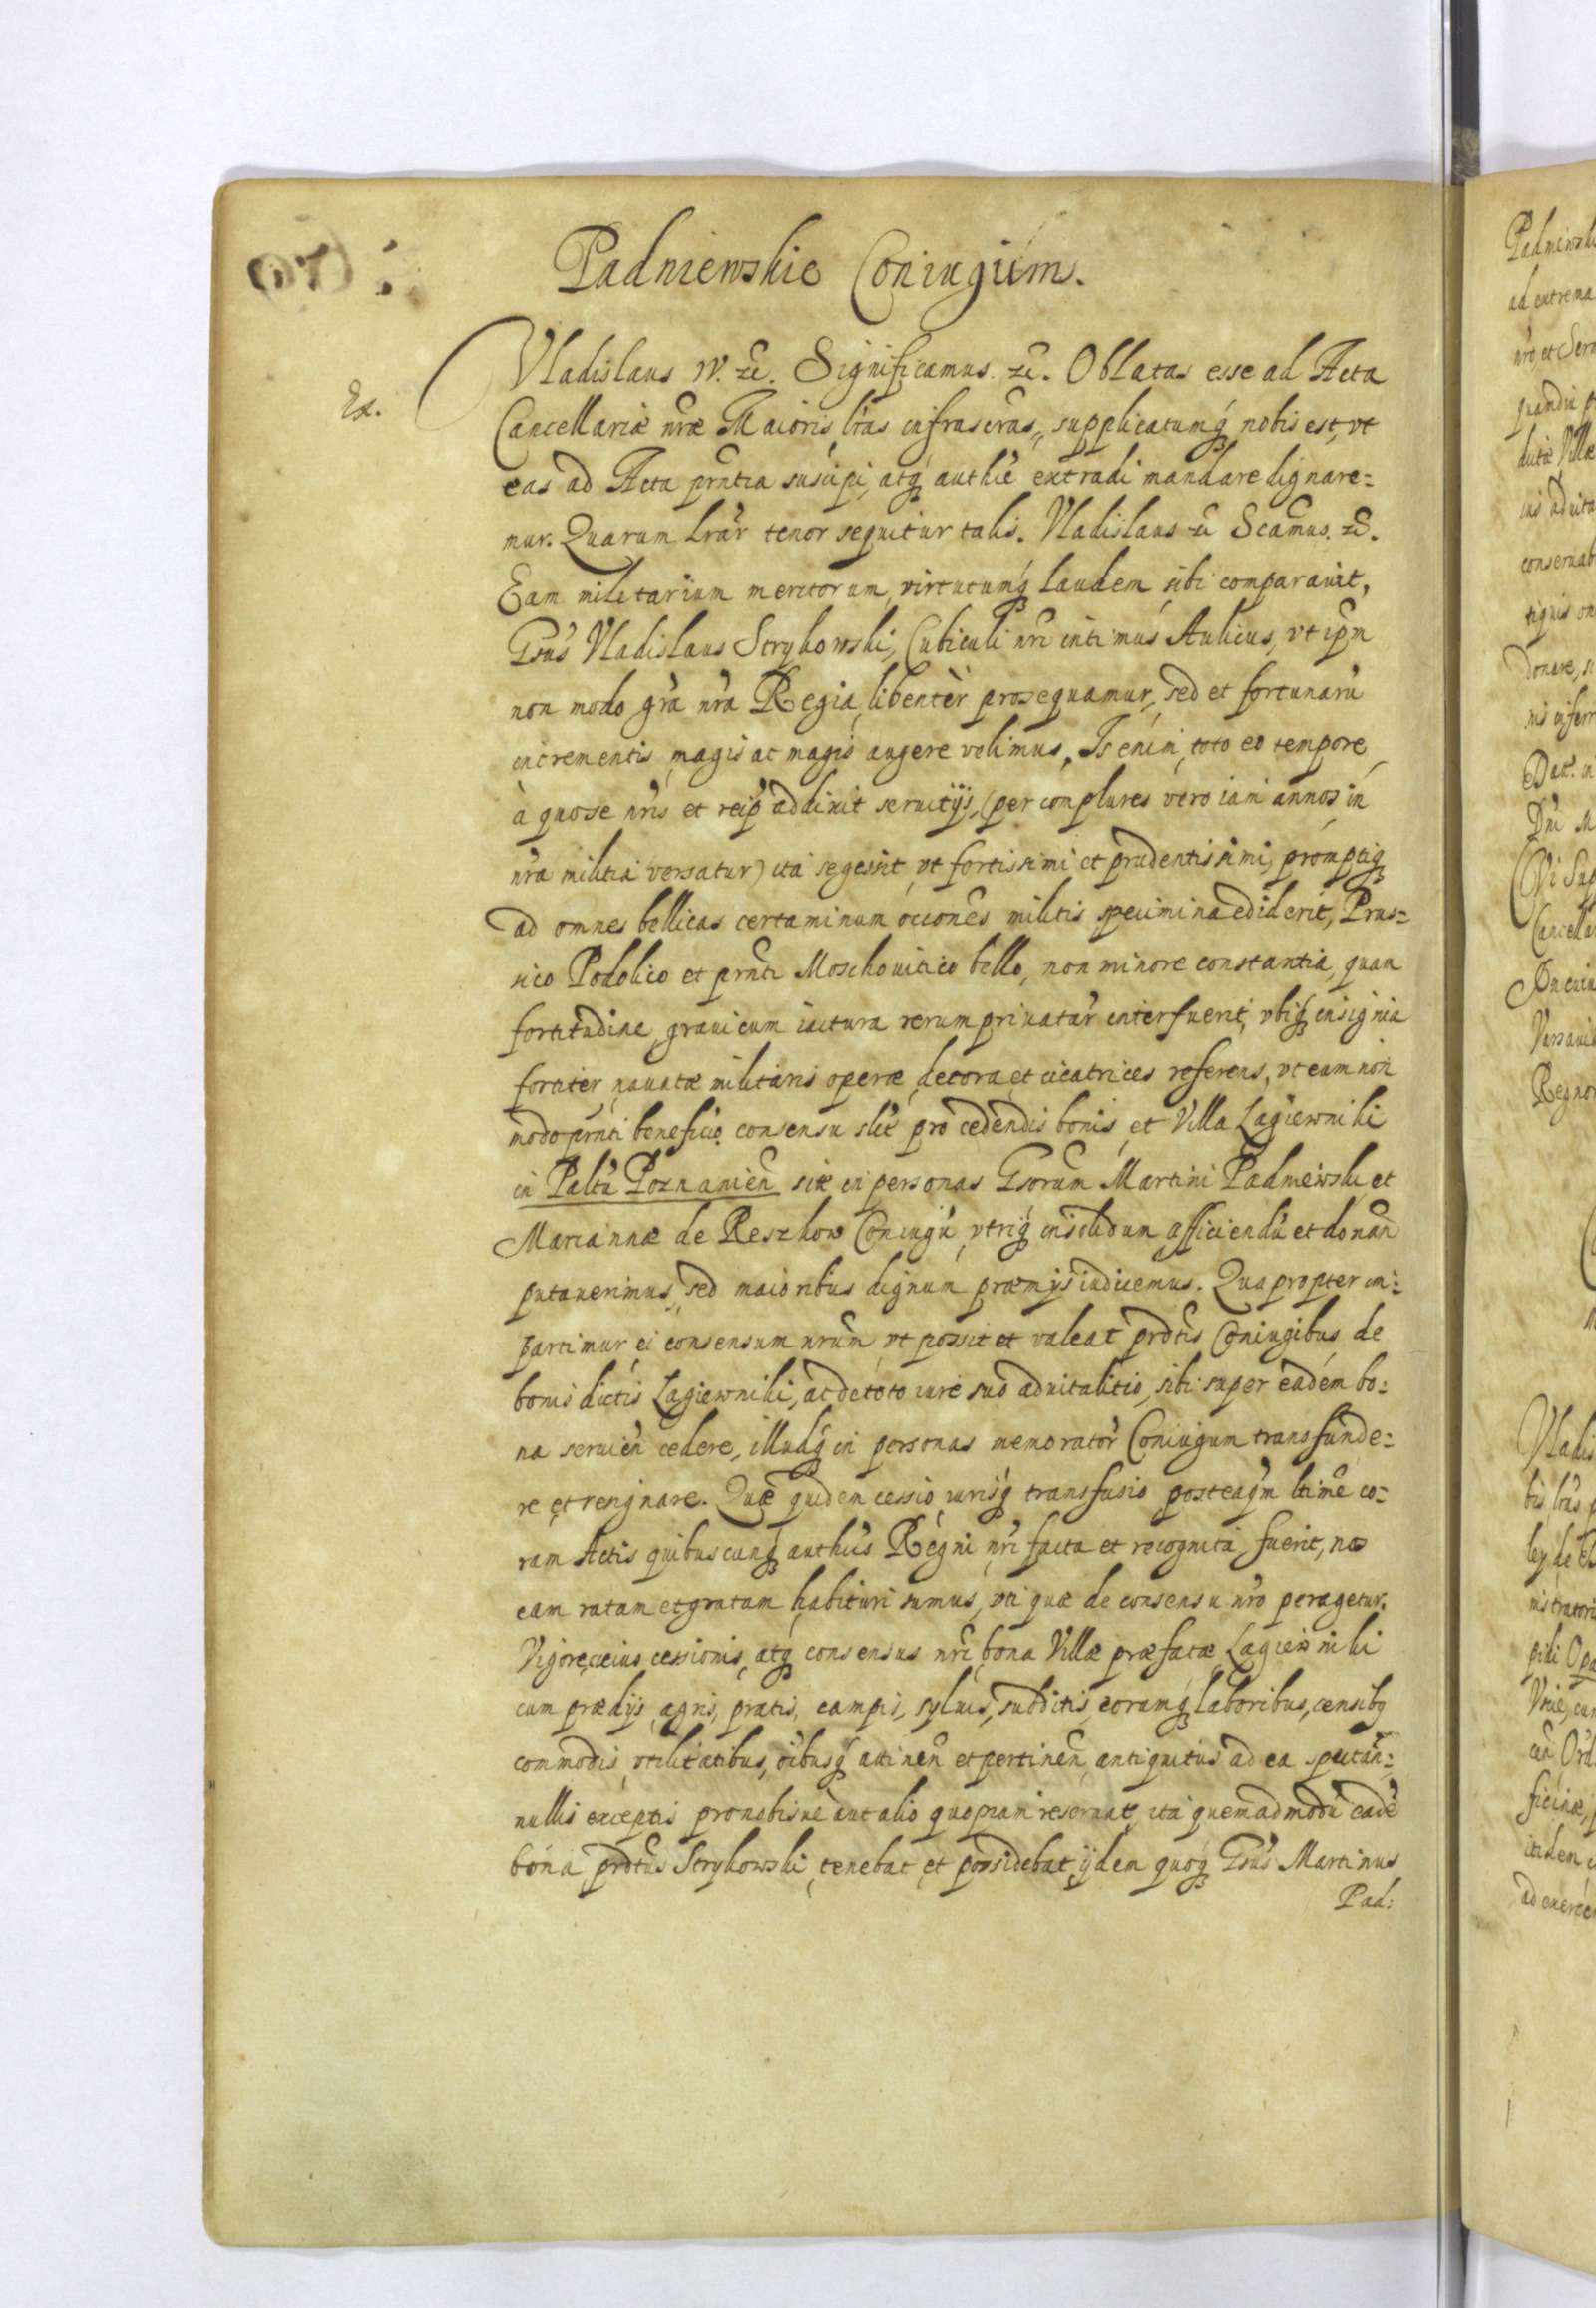 Padniewskie Coniugúm.
Ex.
Vladislaus IV. &c. Significamus &c. Oblatas esse ad Acta
Cancellariæ nr̃æ Maioris lr̃as infrascr̃as, supplicatumq́ nobis est, vt
eas ad Acta pr̃ntia suscipi, atq́ authẽ extradi mandare dignare=
mur. Quarum lrãr̃ tenor sequitur talis. Vladislaus &c Scamus &c.
Eam militarium meritorum, virtutumq́ laudem sibi comparauit,
Gsũs Vladislaus Strykowski, Cubiculi nr̃i intimus Aulicus, vt ipm̃
non modo gr̃a nr̃a Regia, libentèr prosequamur, sed et fortunarũ
incrementis, magis ac magis augere velimus. Is enim, toto eo tempore
à quo se nr̃is et reip̃ addixit seruitijs, (per complures vero iam annos in
nr̃a militia versatur) ita se gessit, vt fortissimi et prudentissimi, promptiq́
ad omnes bellicas certaminum occõnes militis specimina ediderit, Prus=
sico Podolico et pr̃nti Moschouitico bello, non minore constantia, quam
fortitudine, graui cum iactura rerum priuatar̃ interfuerit, vbiq́ insignia
fortiter nauatæ militaris operæ, decora et cicatrices referens, vt eum non
modo pr̃nti beneficio consensu slĩe pro cedendis bonis, et Villa Lagiewniki
in Paltũ Poznanień sitæ in personas Gsorũm Martini Padniewski et
Mariannæ de Reszkow Coniugũ, vtriq́ insolidum afficiendũ et donañd
putauerimus, sed maioribus dignum præmijs iudicemus. Qua propter im=
partimur ei consensum nr̃um vt possit et valeat prdt̃is Coniugibus, de
bonis dictis Lagiewniki, ac de toto iure suo aduitalitio, sibi super eadem bo=
na seruień cedere, illudq́ in personas memorator̃ Coniugum transfunde=
re et resignare. Quæ quidem cessio iurisq́ transfusio posteaq̃m ltimẽ co=
ram Actis quibuscunq́ authcis Regni nr̃i facta et recognita fuerit, nos
eam ratam et gratam habituri sumus, vti quæ de consensu nr̃o peragetur.
Vigore cuius cessionis, atq́ consensus nr̃i bona Villæ præfatæ Lagiewniki
cum prædijs, agris, pratis, campis, syluis, subditis, eorumq́ laboribus, censibq́
commodis, vtilitatibus, oĩbusq́ attineñ et pertineñ, antiquitus ad ea spectañ=
nullis exceptis pro nobis uè aut alio quopiam reseruat̃, ita quemadmodũ eadẽ
bona prdtũs Strykowski, tenebat et possidebat ijdem quoq́ Gsũs Martinus
Pad: